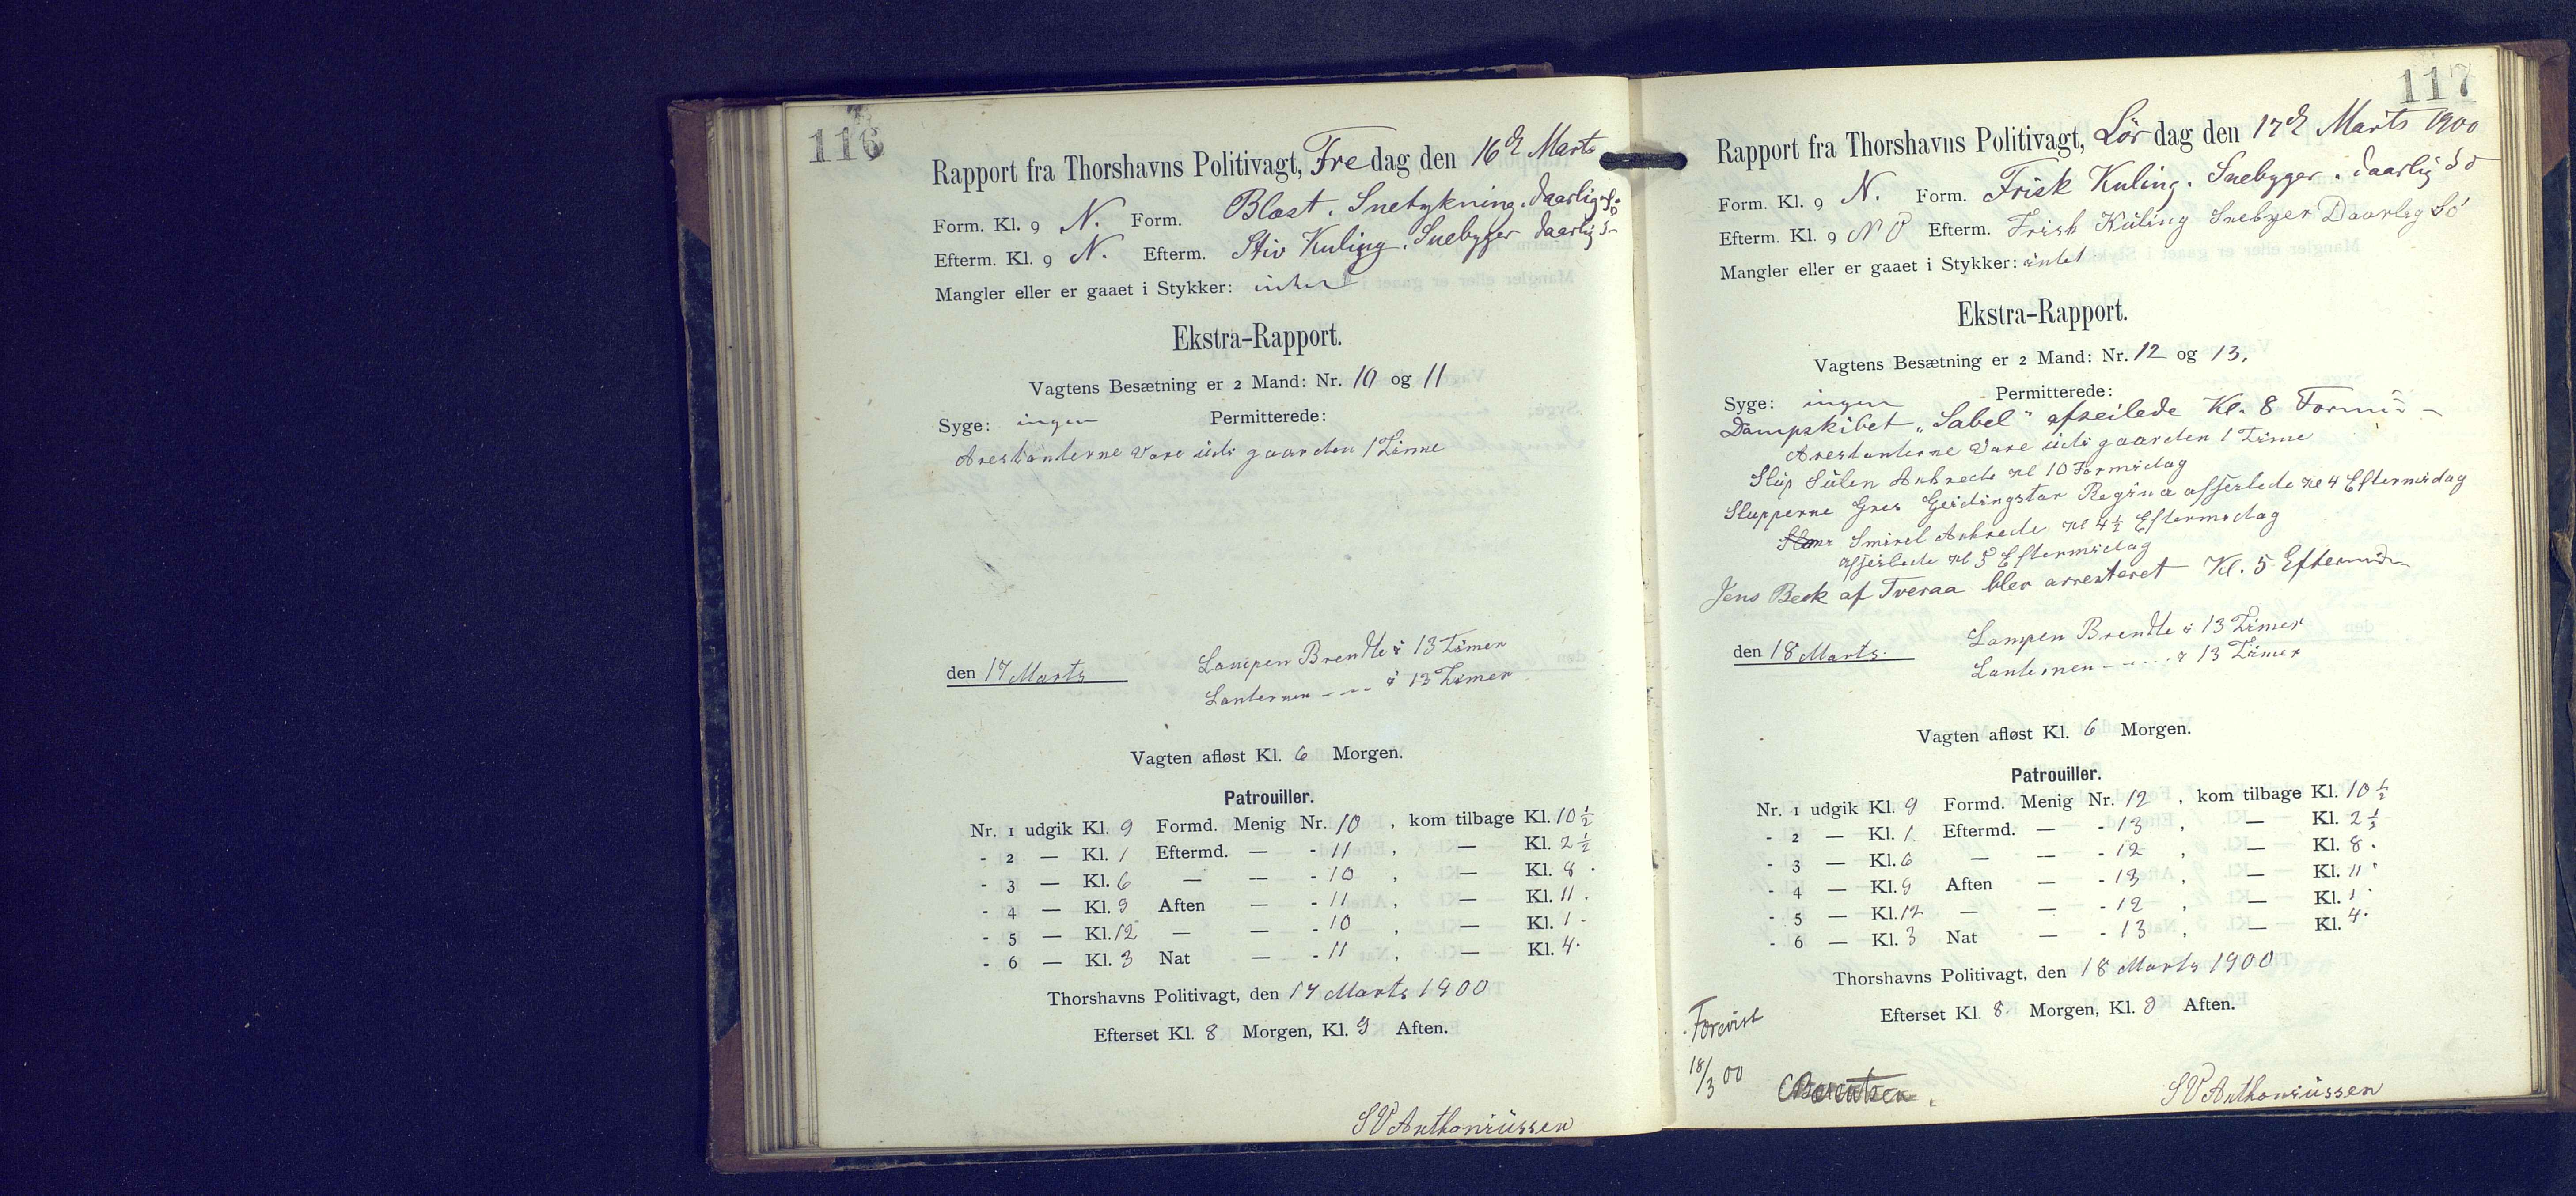 116
Rapport fra Thorshavns Politivagt, Fredag den 16d Marts
Form. Kl. 9 N. Form. Blæst. Snetykning. daarlig Sø
Efterm. Kl. 9 N. Efterm. Stiv Kuling. Snebyger daarlig S-
Mangler eller er gaaet i Stykker: intet
Ekstra-Rapport.
Vagtens Besætning er 2 Mand: Nr. 10 og 11
Syge: ingen Permitterede:
Arestanterne Vare udi gaarden 1 Time
den 17 Marts
Lampen Brendte i 13 Timer
Lanternen - - - i 13 Timer
Vagten afløst Kl. 6 Morgen.
Patrouiller.
Nr. 1 udgik Kl. 9 Formd. Menig Nr. 10, kom tilbage Kl. 10 ½
- 2 — Kl. 1 Eftermd. — - 11, — Kl. 2 ½
- 3 — Kl. 6 — — - 10, — Kl. 8.
- 4 — Kl. 9 Aften — - 11, — Kl. 11.
- 5 — Kl. 12 — — - 10, — Kl. 1-
- 6 — Kl. 3 Nat — - 11, — Kl. 4.
Thorshavns Politivagt, den 17 Marts 1900
Efterset Kl. 8 Morgen, Kl. 9 Aften.
SP Anthoniüssen
117
Rapport fra Thorshavns Politivagt, Lördag den 17d Marts 1900
Form. Kl. 9 N. Form. Frisk Kuling. Snebyger. daarlig Sö
Efterm. Kl. 9 NO Efterm. Frisk Küling Snebyer Daarlig Sö
Mangler eller er gaaet i Stykker: intet
Ekstra-Rapport.
Vagtens Besætning er 2 Mand: Nr. 12 og 13.
Syge: ingen Permitterede:
Dampskibet „Sabel" afseilede Kl. 8 Formid-
Arestanterne Vare üdi gaarden 1 Time
Slup Sülen Ankrede Kl 10 Formidag
Slupperne Gres Geidingstar Regina afseilede Kl 4 Eftermidag
Smirel Ankrede Kl 4 ½ Eftermidag
afseilede Kl 5 Eftermidag
Jens Beck af Tveraa blev arresteret Kl. 5 Eftermid-
den 18 Marts.
Lampen Brendte i 13 Timer
Lanternen - - . . . i 13 Timer
Vagten afløst Kl. 6 Morgen.
Patrouiller.
Nr. 1 udgik Kl. 9 Formd. Menig Nr. 12, kom tilbage Kl. 10 ½
- 2 — Kl. 1 Eftermd. — - 13, — Kl. 2 ½
- 3 — Kl. 6 — — - 12, — Kl. 8.
- 4 — Kl. 9 Aften — - 13, — Kl. 11.
- 5 — Kl. 12 — — - 12, — Kl. 1.
- 6 — Kl. 3 Nat — - 13, — Kl. 4.
Thorshavns Politivagt, den 18 Marts 1900
Efterset Kl. 8. Morgen, Kl. 9 Aften.
Forevist
18/3 00
CBærentsen.
SP Anthoniüssen